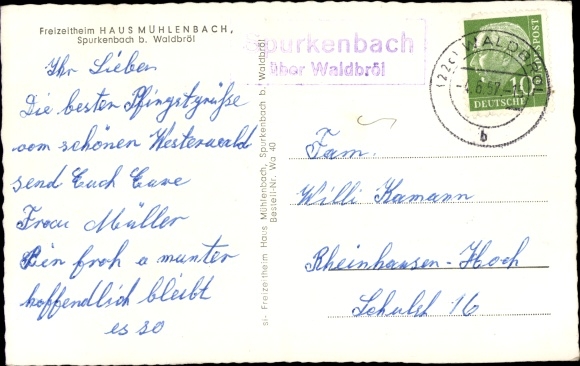 Freizeitheim HAUS MÜHLENBACH,
Spurkenbach b. Waldbröl
Ihr Lieben
Die besten Pfingstgrüße
vom schönen Westerwald
send Euch Eure
Frau Müller
Bin froh u munter
hoffendlich bleibt
es so
si- Freizeitheim Haus Mühlenbach, Spurkenbach b. Waldbröl
Bestell-Nr. Wa 40
Spurkenbach
über Waldbröl
(22c) WALDBRÖL
b
10
DEUTSCHE BUNDESPOST
Fam.
Willi Kamann
Rheinhausen-Hoch
Schulst 16